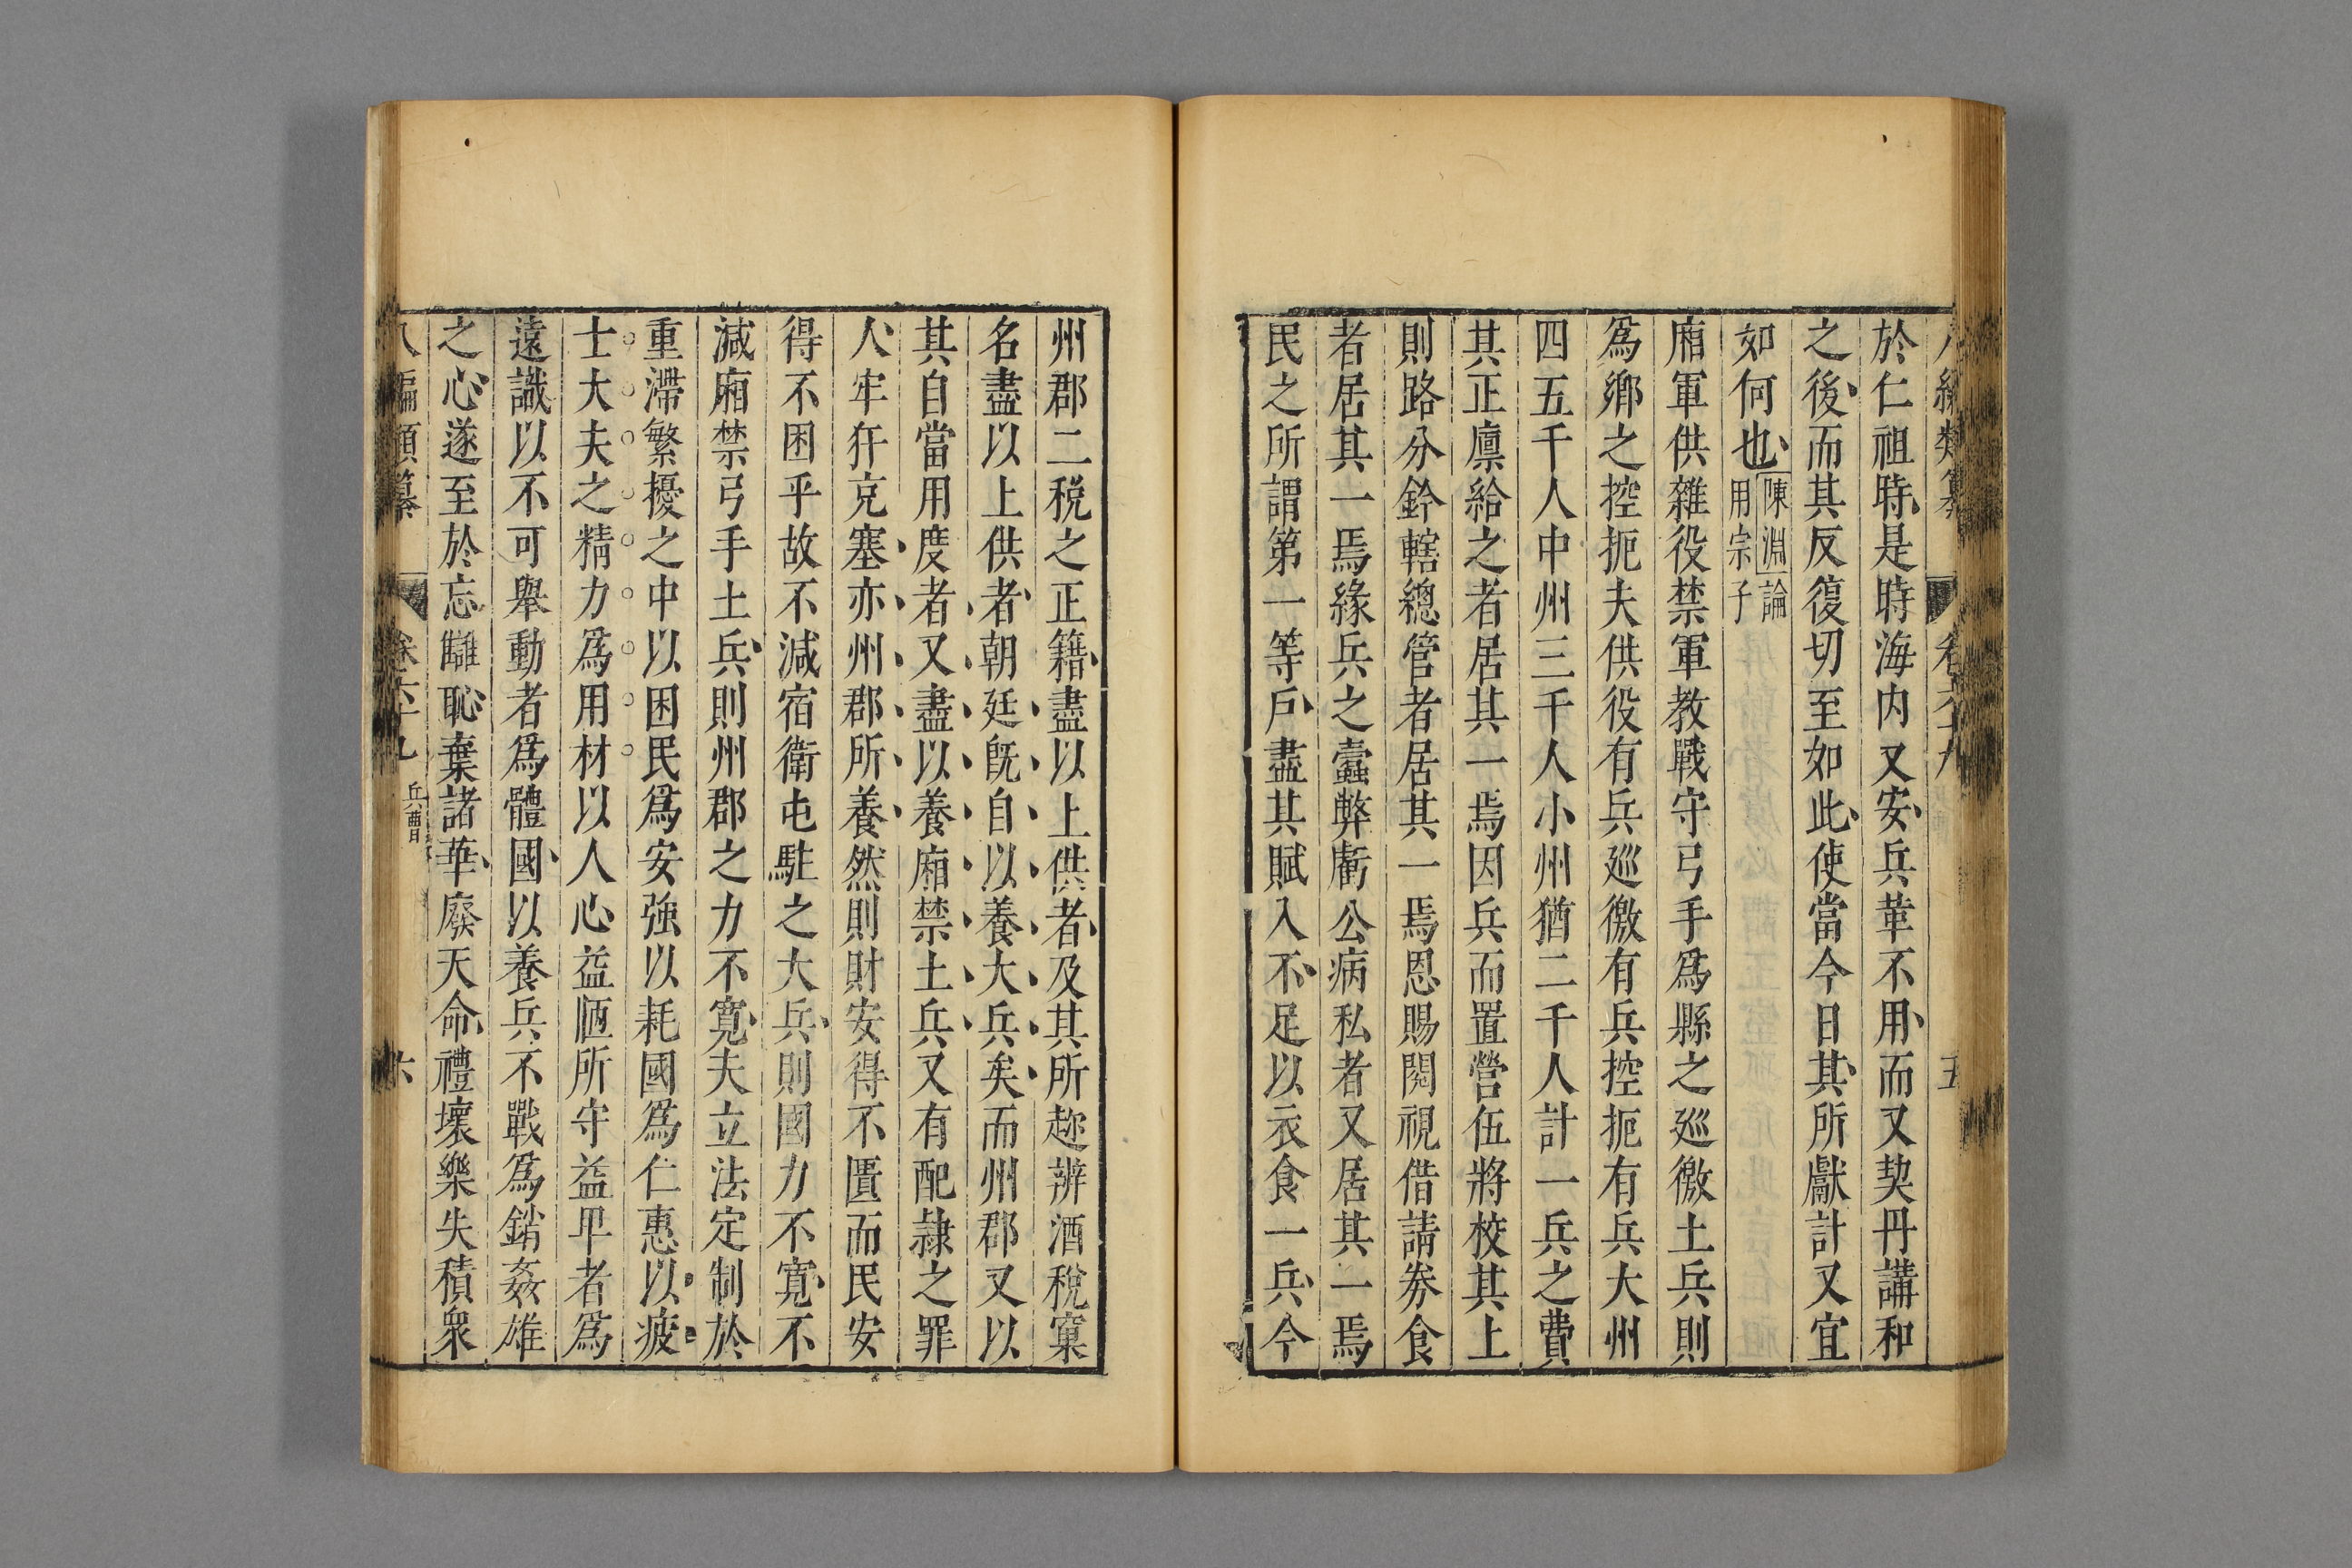 於仁祖時是時海内又安兵革不用而又契丹講和
之後而其反復切至如此使當今日其所獻計又宜
如何也陳淵論用宗子
廂軍供雜役禁軍教戰守弓手為縣之廵徼土兵則
為鄉之控扼夫供役有兵廵徼有兵控扼有兵大州
四五千人中州三千人小州猶二千人計一兵之費
其正廪給之者居其一焉因兵而置營伍將校其上
則路分鈐轄總管者居其一焉恩賜閱視借請券食
者居其一焉緣兵之蠧弊虧公病私者又居其一焉
民之所謂第一等戶盡其賦入不足以衣食一兵今
州郡二稅之正籍盡以上供者及其所趂辨酒稅窠
名盡以上供者朝廷旣自以養大兵矣而州郡又以
其自當用度者又盡以養廂禁土兵又有配隷之罪
人牢犴充塞亦州郡所養然則財安得不匱而民安
得不困乎故不減宿衛屯駐之大兵則國力不寛不
減廂禁弓手土兵則州郡之力不寛夫立法定制於
重滯繁擾之中以困民爲安強以耗國爲仁惠以疲
士大夫之精力爲用材以人心益陋所守益卑者爲
遠識以不可舉動者爲體國以養兵不戰爲銷姦雄
之心遂至於忘讎恥棄諸華廢天命禮壞樂失積衆
八編類纂 卷六十九 兵曹 六